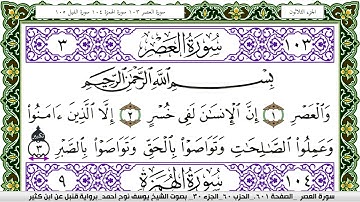 الجزء الثلاثون
سورة العصر ١٠٣ سورة الهمزة ١٠٤ سورة الفيل ١٠٥
٣ سُورَةُ العَصْرِ ١٠٣
بِسْمِ اللَّهِ الرَّحْمَٰنِ الرَّحِيمِ
وَالْعَصْرِ ١ إِنَّ الْإِنسَٰنَ لَفِى خُسْرٍ ٢ إِلَّا الَّذِينَ ءَامَنُوا۟
وَعَمِلُوا۟ الصَّٰلِحَٰتِ وَتَوَاصَوْا۟ بِالْحَقِّ وَتَوَاصَوْا۟ بِالصَّبْرِ ٣
٩ سُورَةُ الهُمَزَةِ ١٠٤
سورة العصر . الصفحة ٦٠١ . الحزب ٦٠ . الجزء ٣٠ . بصوت الشيخ يوسف نوح أحمد برواية قنبل عن ابن كثير